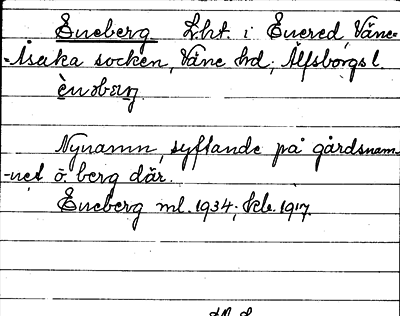 Eneberg Lht. i Enered, Väne-
-Åsaka socken, Väne hd; Älfsborgs l.
Nynamn, syftande på gårdsnam-
-net ö. berg där.
Eneberg ml. 1934;  1917.